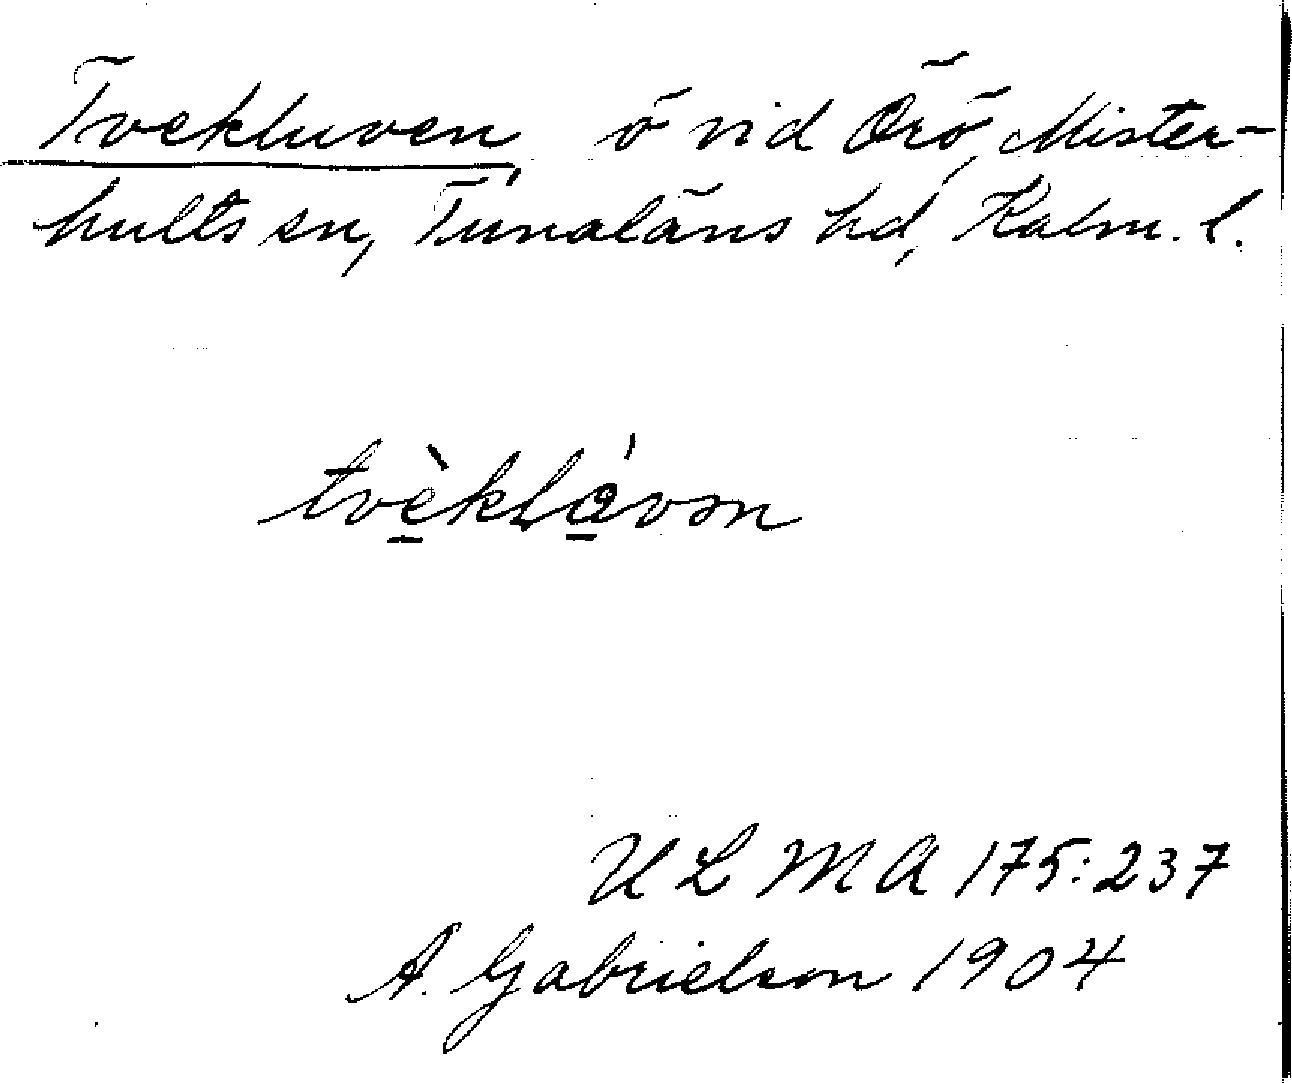 Tvekluven, ö vid Örö, Mister-
hults sn, Tunaläns hd, Kalm. l.
ULMA 175:237
A. Gabrielson 1904